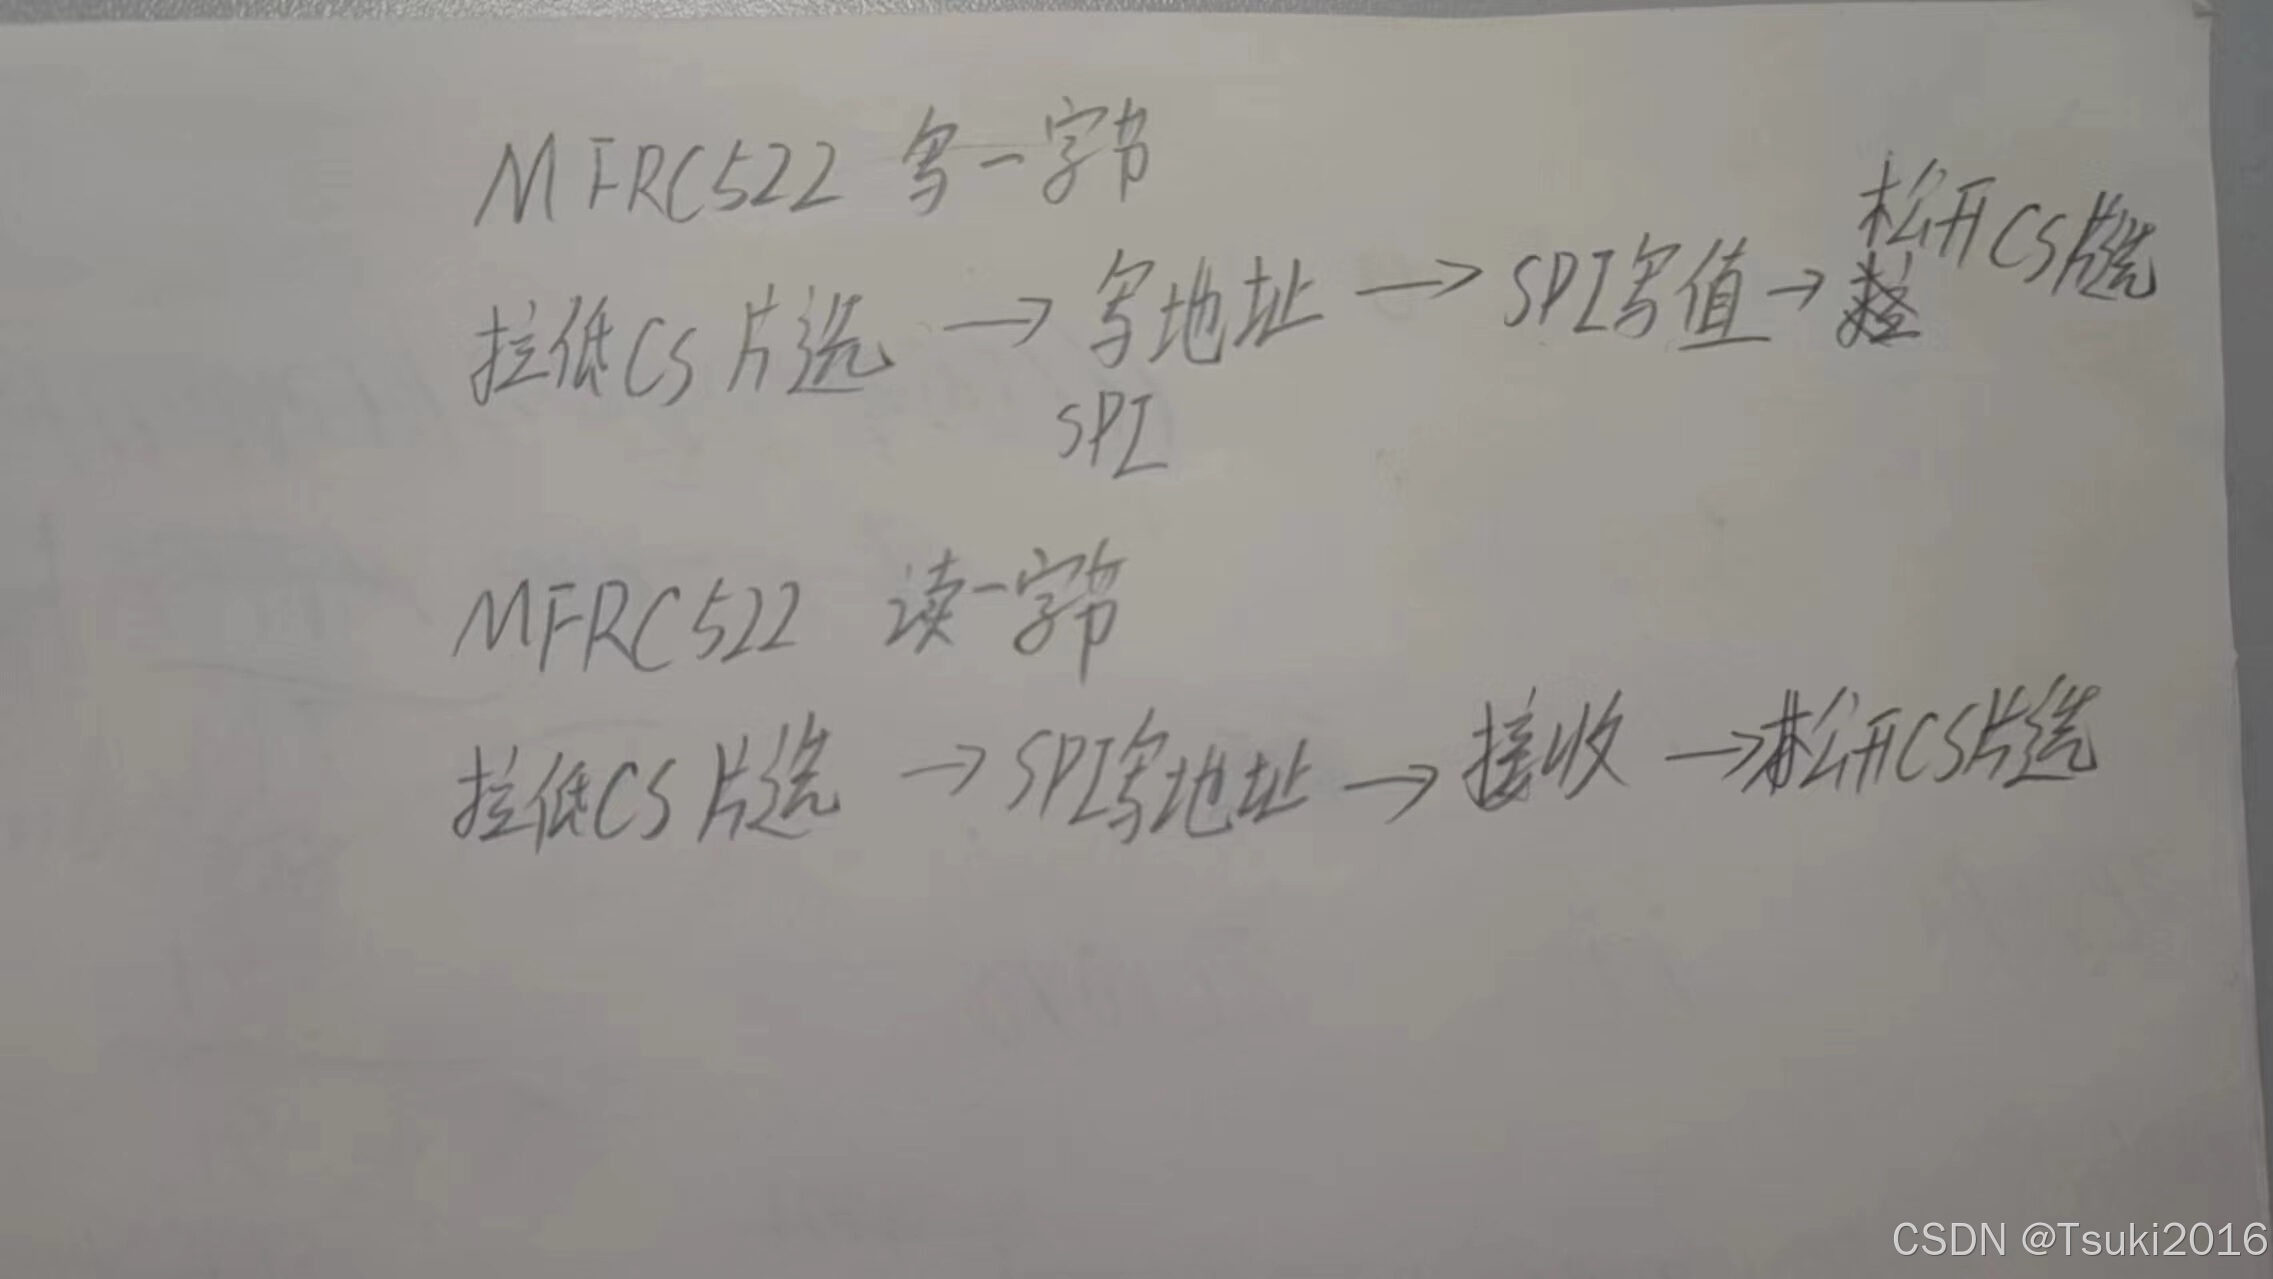 MFRC522 写一字节
拉低CS片选 → 写地址 → SPI写值 → 松开CS片选
SPI
MFRC522 读一字节
拉低CS片选 → SPI写地址 → 接收 → 松开CS片选
CSDN @Tsuki2016